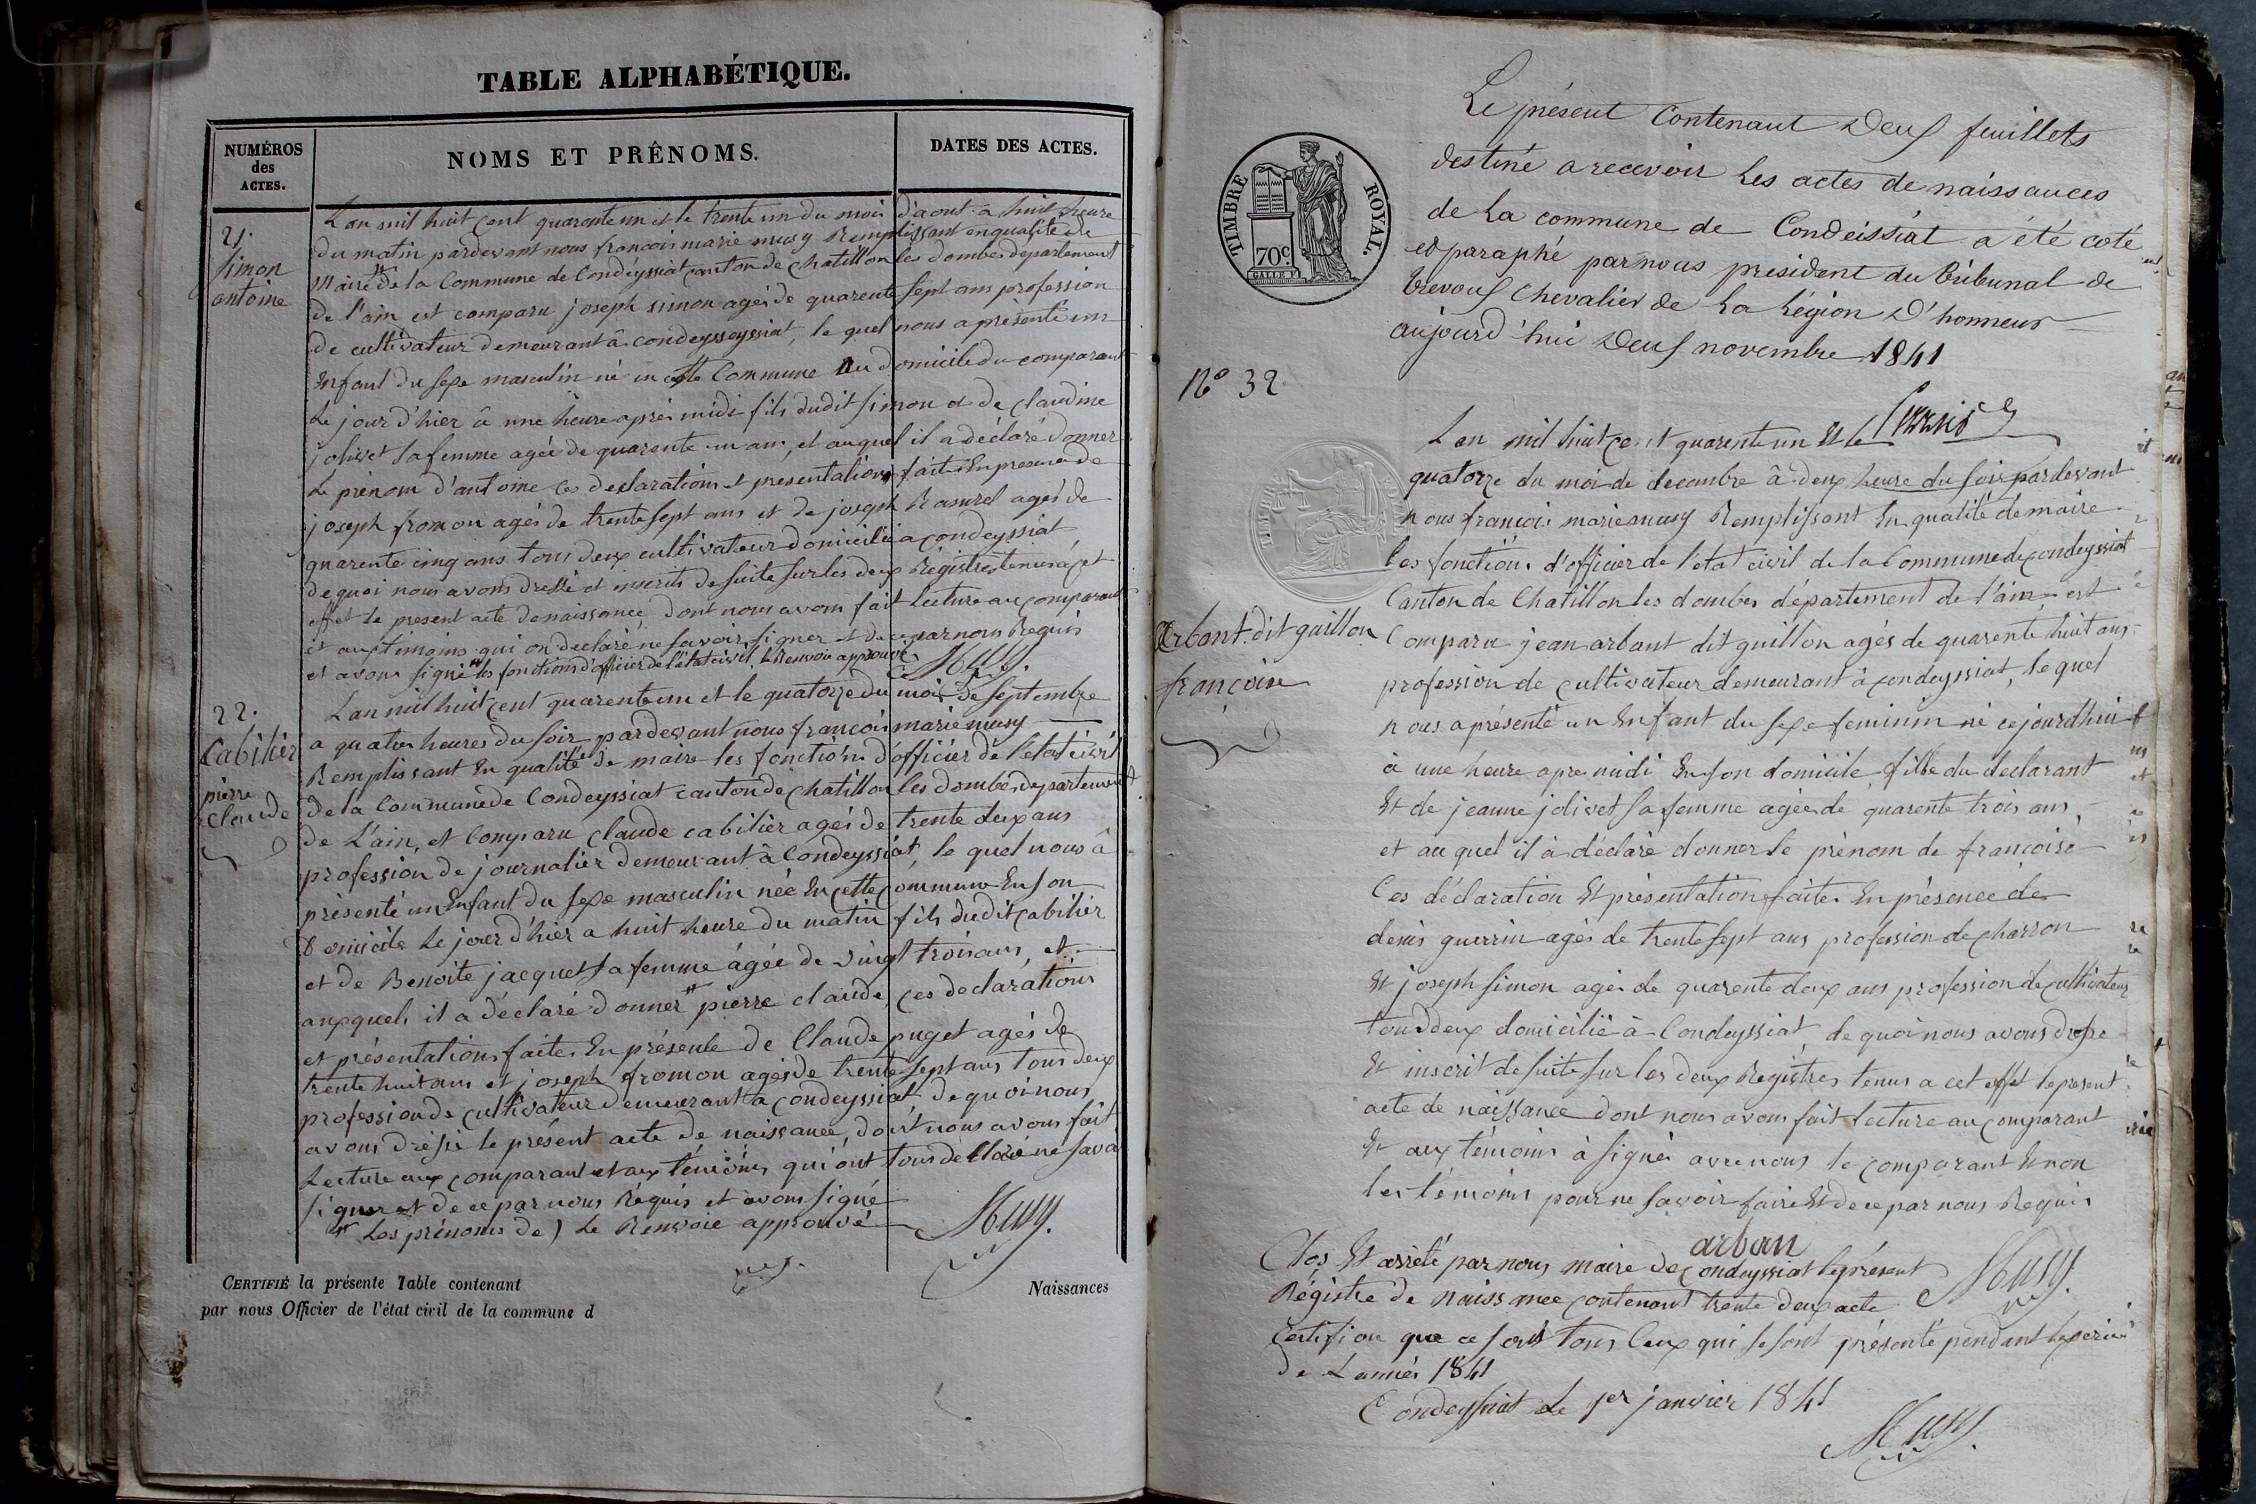 TABLE ALPHABÉTIQUE.
NUMÉROS
des
ACTES.
NOMS ET PRÊNOMS.
DATES DES ACTES.
21.
Simon
antoine
L'an mil huit cent quarente un et le trente un du mois d'aout a huit heure
du matin pardevant nous francois marie musy Remplissant en qualité de
Maire # de la Commune de Condeyssiat canton de chatillon les dombes departement
de l'ain est comparu joseph simon agés de quarente sept ans profession
de cultivateur demeurant â condeysseyssiat, le quel nous a présenté un
Enfant du sexe masculin né en cette Commune Au domicile du comparant
Le jour d'hier â une heure aprés midi fils dudit simon et de claudine
jolivet sa femme agée de quarente un ans, et auquel il a déclaré donner
Le prénom d'antoine Ces declarations et presentations faites En presence de
joseph fromon agés de trente sept ans et de joseph Rasurel agés de
quarente cinq ans tous deux cultivateur domicilié a condeyssiat
de quoi nous avons dressé et inscrits de suite sur les deux Régistres tenus a cet
effet le present acte de naissance, dont nous avons fait Lecture au comparant
et aux témoins qui on declaré ne savoir signer et de ce par nous Requis
et avons signé # les fonctions d'officier de l'état civil, le Renvoie approuvé
Musy.
22.
Cabilier
pierre
Claude
L'an mil huit cent quarente un et le quatorze du mois de septembre
a quatre heures du soir pardevant nous francois marie musy
Remplissant En qualité de maire les fonctions d'officier de l'état civil
de la Commune de Condeyssiat canton de chatillon les dombes departement
de L'ain, et Comparu claude cabilier agés de trente deux ans
profession de journalier demeurant â Condeyssiat, le quel nous â
présenté un Enfant du sexe masculin née En cette commune En son
Domicile Le jour d'hier a huit heure du matin fils dudit cabilier
et de Benoite jacquet sa femme âgée de vingt trois ans, et
auxquels il a déclaré donner # pierre claude, ces declarations
et présentations faites En présente de Claude puget agés de
trente huit ans et joseph fromon agés de trente sept ans tous deux
profession de cultivateur demeurant a condeyssiat de quoi nous
avons dressé le présent acte de naissance, dont nous avons fait
Lecture aux comparant et aux témoins qui ont tous déclaré ne sava
signer et de ce par nous Réquis et avons signé
# Les prénoms de) Le Renvoie approuvé
Musy.
CERTIFIÉ la présente Table contenant
Naissances
par nous Officier de l'état civil de la commune d
Le présent Contenant Deux feuillets
destiné a recevoir les actes de naissances
de la commune de Condeissiat a été coté
et paraphé par nous president du tribunal de
trevoux chevalier de la Légion D'honneur
aujourd'hui Deux novembre 1841
TIMBRE ROYAL.
70c
N° 32
Arbant. dit guillon
francoise
L'an mil huit cent quarente un Et le
quatorze du moi de decembre â deux heure du soir pardevant
nous francois marie musy Remplissant En qualité de maire
les fonctions d'officier de l'état civil de la Commune de condeyssiat
Canton de Chatillon les dombes département de l'ain est
Comparu jean arbant dit guillon agés de quarente huit ans
profession de cultivateur demeurant à condeyssiat, le quel
nous a présenté un Enfant du sexe feminin né ce jourdhui
à une heure apre midi En son domicile fille du declarant
Et de jeanne jolivet sa femme agée de quarente trois ans,
et au quel il à déclaré donner le prénom de francoise
Ces déclaration Et présentation faites En présence de
denis guerrin agés de trente sept ans profession de charron
Et joseph simon agés de quarente deux ans profession de cultivateur
tous deux domicilié à Condeyssiat, de quoi nous avons dressé
Et inscrit de suite sur les deux Registres tenus a cet effet le present
acte de naissance dont nous avons fait lecture au comparant
Et aux témoins à signé avec nous le comparant Et non
les témoins pour ne savoir faire Et de ce par nous Requis
arban
Musy.
Clos Et arrêté par nous maire de Condeyssiat le présent
Régistre de Naissance contenant trente deux acte
Certifion que ce sont tous Ceux qui se sont présenté pendant
de L'année 1841
Condeyssiat Le 1er janvier 1841
Musy.